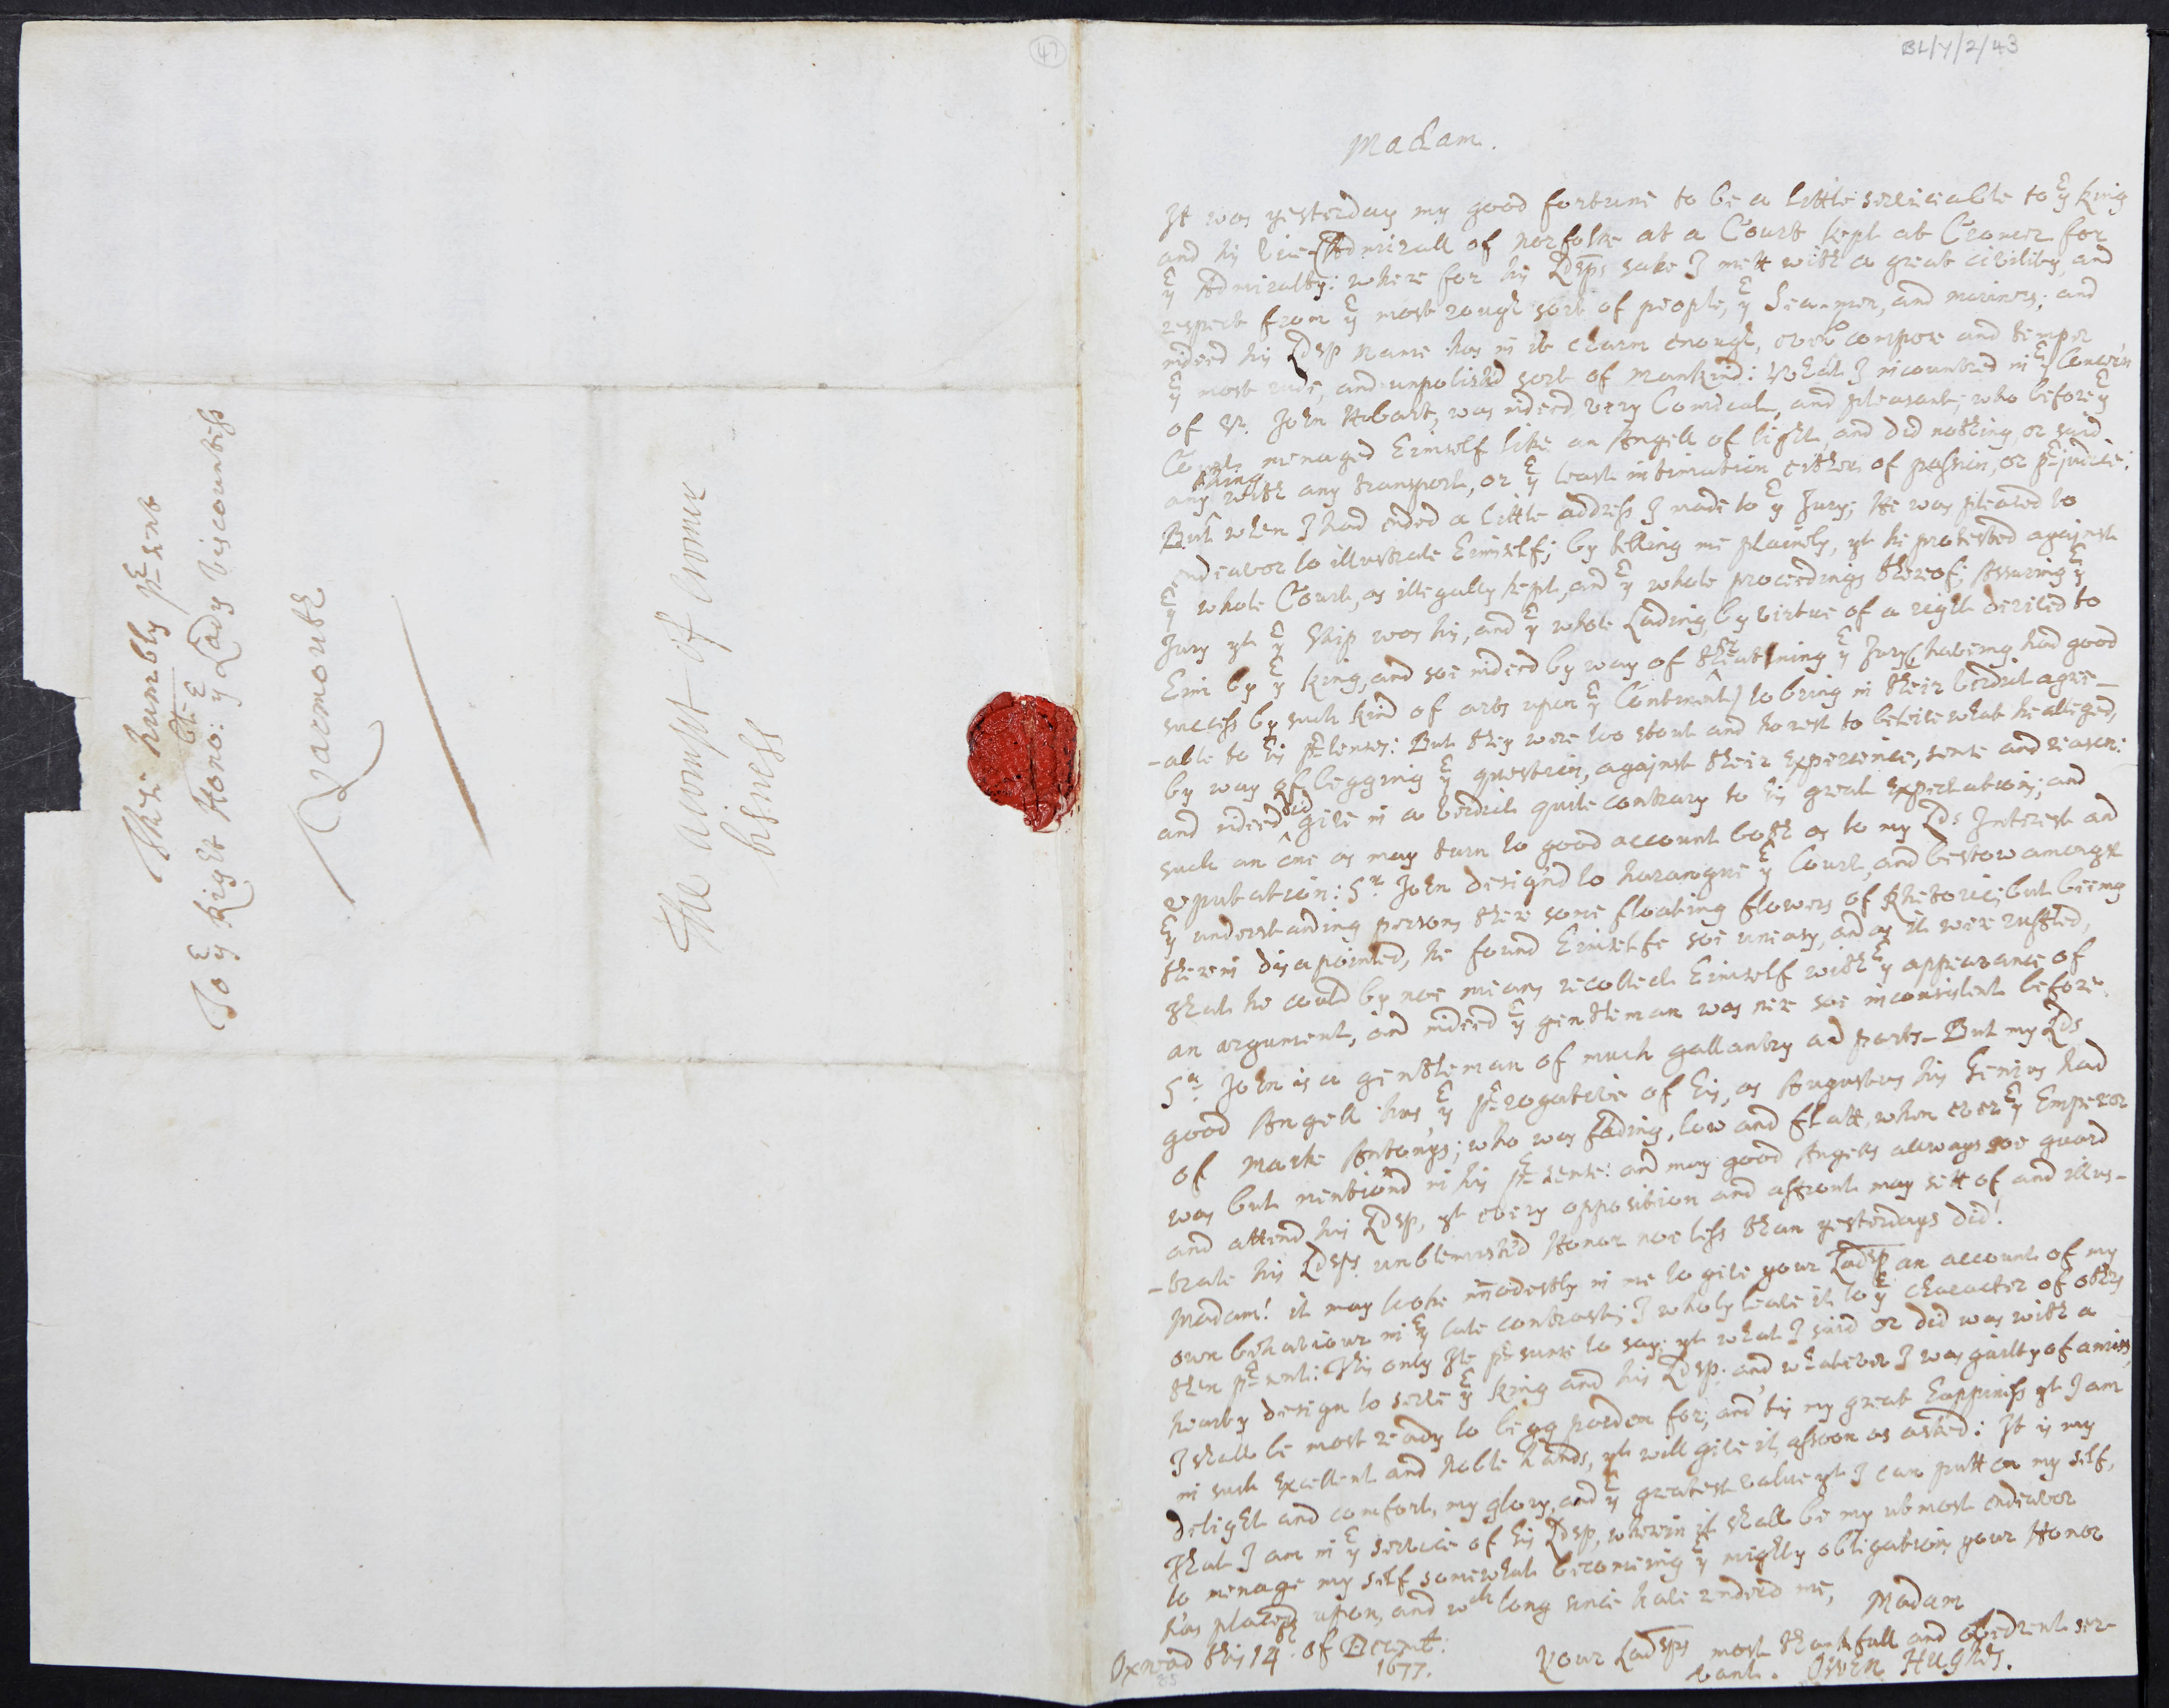 47
BL/Y/2/43
These humbly pͤsent
To yͤ Right Honoᵇˡᵉ: yͤ Lady Viscountess
Yarmouth
The acompt of Cromer
bisness
Madam.
It was yesterday my good fortune to be a little serviceable to yͤ King
and his Vice-Admirall of Norfolke at a Court kept at Cromer for
yͤ Admiralty: where for his Ldsps sake I mett with a great civility, and
respect from yͤ most rough sort of people, yͤ Sea-men, and mariners; and
indeed his Ldsp name has in it charm enough, even to compose and temper
yͤ most rude, and unpolishd sort of mankind: What I incountred in yͤ Concern
of Sr. John Hobart, was indeed very Comical, and pleasant; who before yͤ
Court menaged himself like an Angell of light, and did nothing, or said
any thing with any transport, or yͤ least intimation either of passion, or pͤjudice:
But when I had ended a little address I made to yͤ Jury; He was pleased to
endeavor to illustrate himself; by telling me plainly, yt he protested against
yͤ whole Court, as illegally kept, and yͤ whole proceedings thereof; Assuring yͤ
Jury yt yͤ Ship was his, and yͤ whole Lading, by virtue of a right derived to
him by yͤ King, and soe indeed by way of threatning yͤ Jury (haveing had good
success by such kind of arts upon yͤ Continent) to bring in their verdict agre-
-able to his pͤtenses: But they were too stout and honest to beleive what he alleged,
by way of begging yͤ question, against their experience, sense and reason:
and indeed did give in a verdict quite contrary to his great expectations; and
such an one as may turn to good account both as to my Lds Interest and
reputation: Sr John design'd to harangue yͤ Court, and bestow amongst
yͤ understanding persons there some floating flowers of Rhetoric; but being
therein disapointed, he found himselfe soe uneasy, and as it were ruffled,
that he could by noe means recollect himself with yͤ appearance of
an argument, and indeed yͤ gentleman was nere soe inconsistent before.
Sr John is a gentleman of much gallantry ad parts- But my Lds
good Angell has yͤ pͤrogative of his, as Augustus his Genius had
of Marke Antonys; who was fading, low and flatt, when ever yͤ Emperor
was but mentiond in his pͤsense: and may good Angells allways soe guard
and attend his Ldsp, yt every opposition and affront may sett of and illus-
-trate his Ldsps unblemish'd Honor noe less than yesterdays did!
Madam! it may looke immodestly in me to give your Ladsp an account of my
own behaviour in yͤ late contrast; I wholy leave it to yͤ character of others
then pͤsent: This only Ile pͤsume to say; yt what I said or did was with a
hearty design to serve yͤ King and his Ldsp. and whatever I was guilty of amiss,
I shall be most ready to begg pardon for; and 'tis my great happiness yt I am
in such Excellent and Noble hands, yt will give it, assoon as asked: It is my
delight and comfort, my glory, and yͤ greatest value yt I can putt on my self,
That I am in yͤ service of his Ldsp, wherin it shall be my utmost endeavor
to menage my self somewhat becomeing yͤ mighty obligations your Honor
has placed upon, and wch long since have renderd me, Madam
Oxnead this 14th. of Decemb: 1677.
Your Ladsps most thankfull and obedient ser-
vant. Owen Hughes.